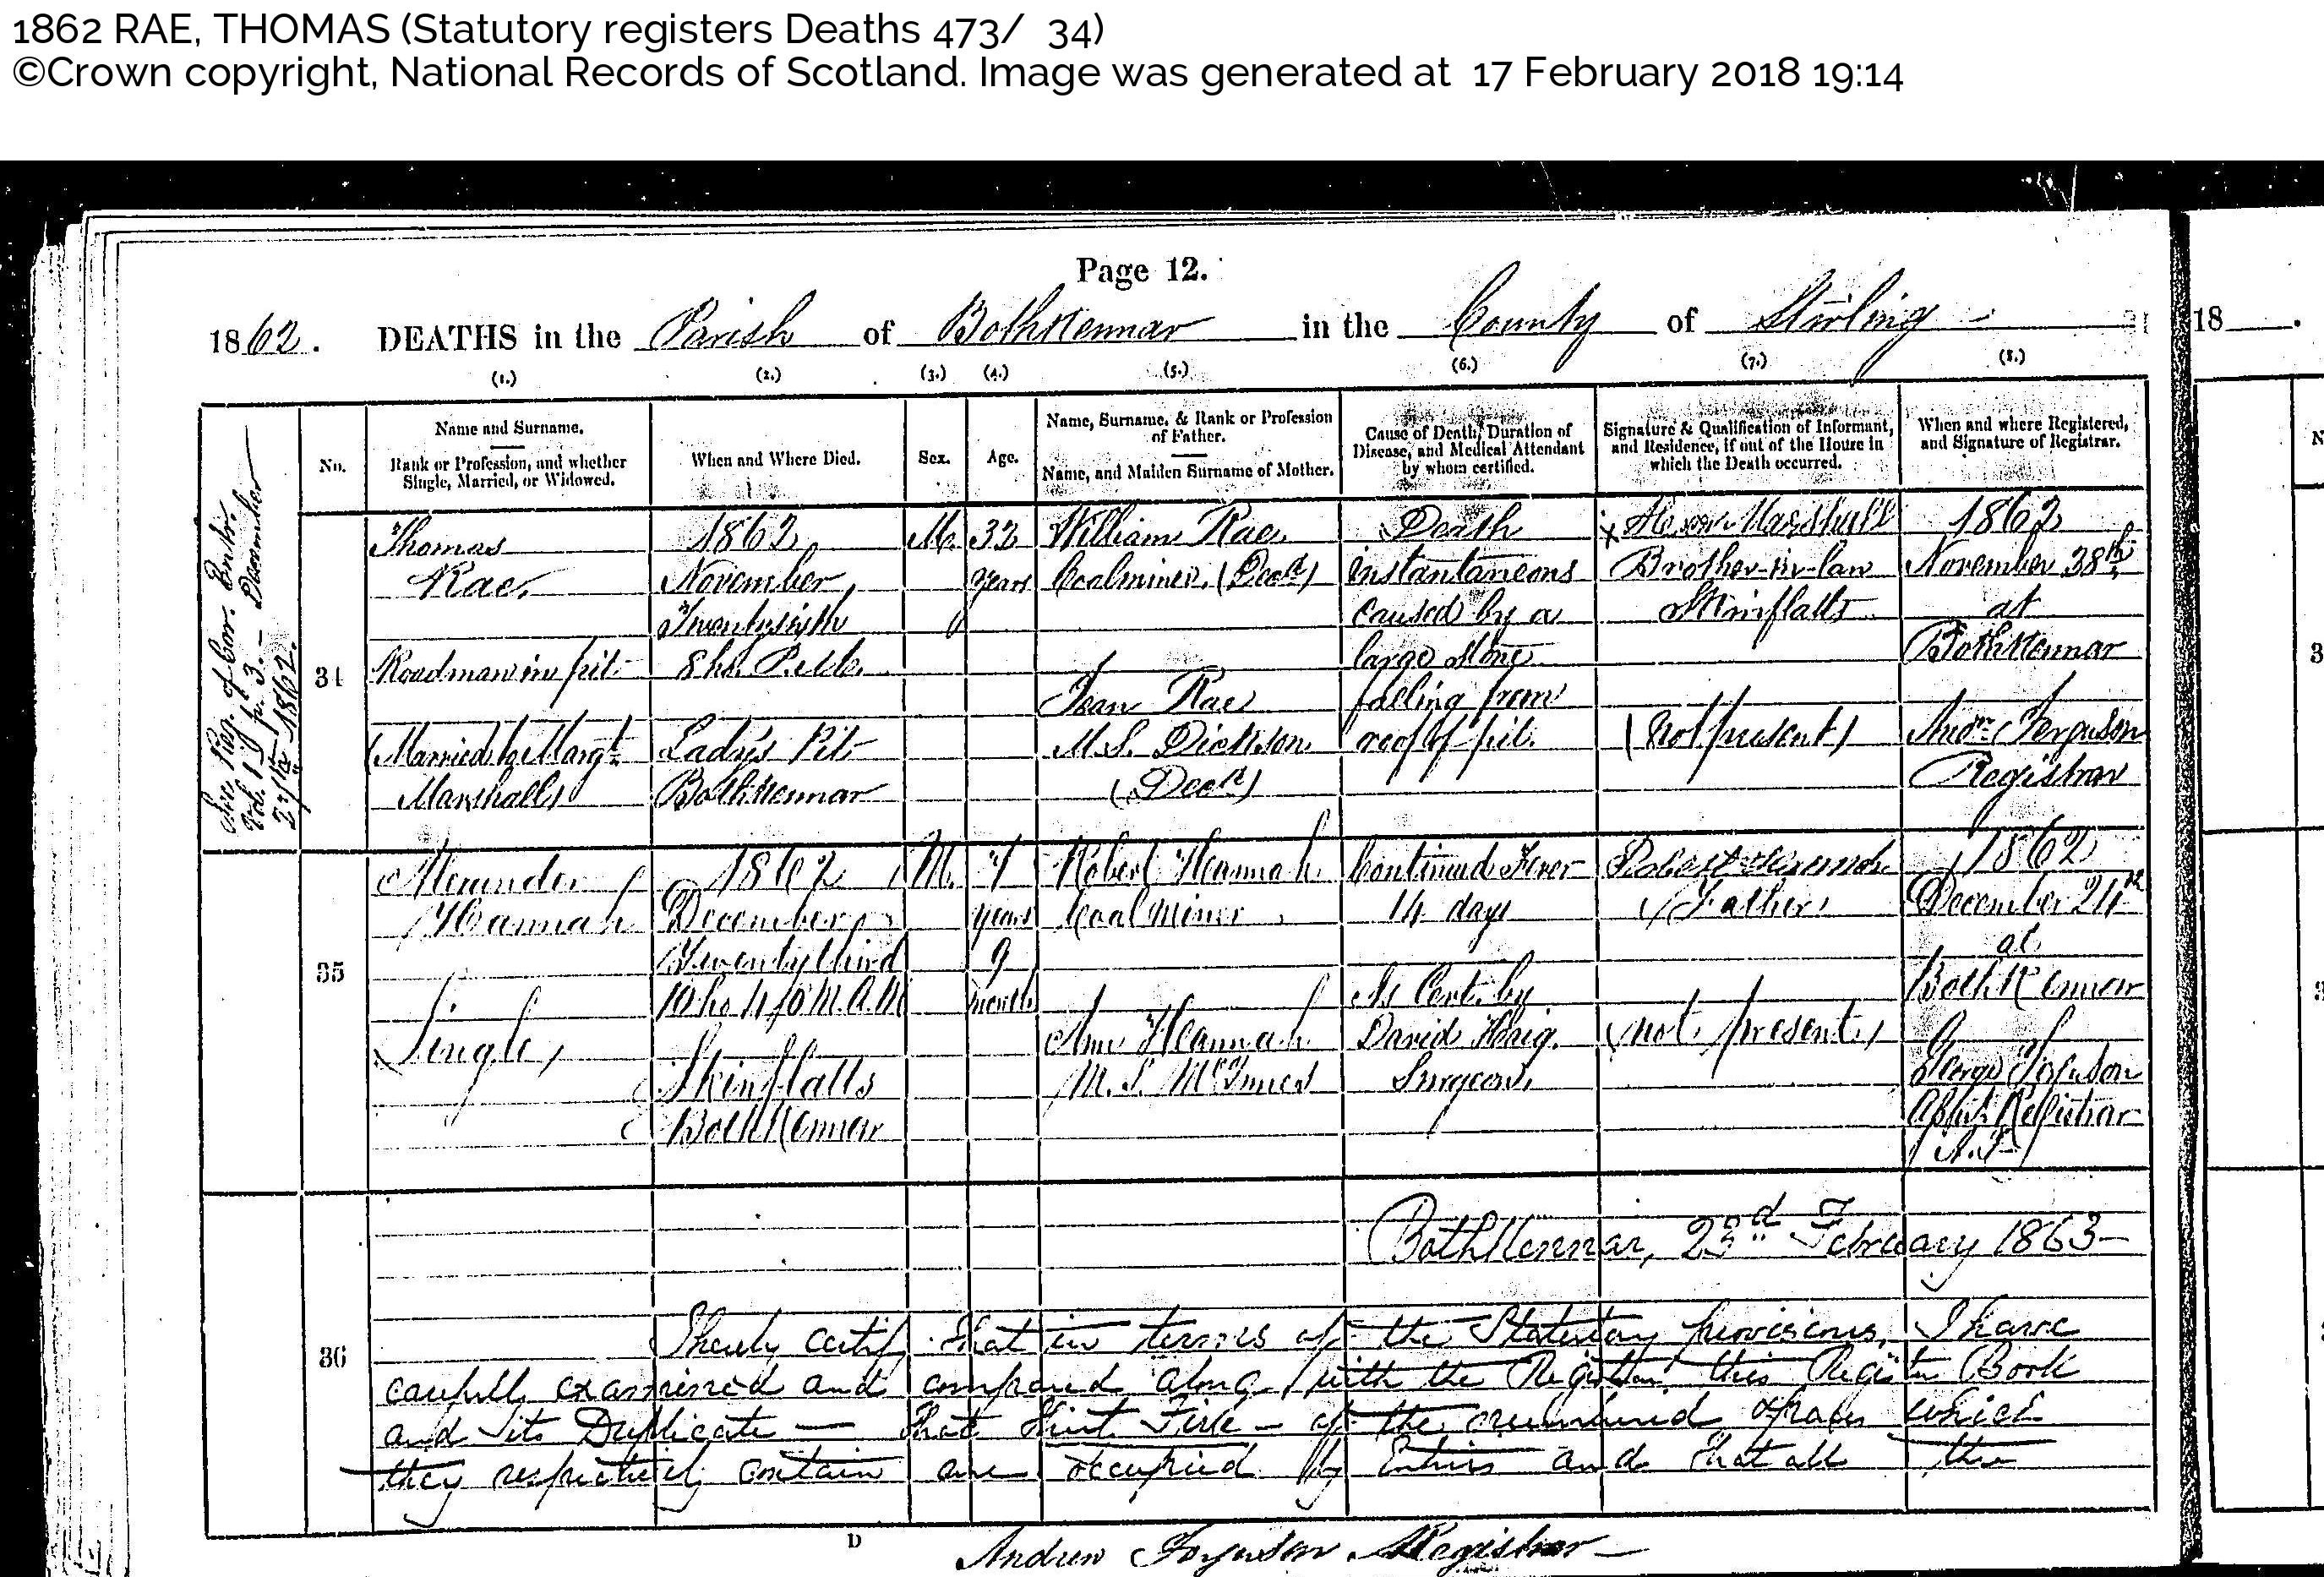 1862 RAE, THOMAS (Statutory registers Deaths 473/ 34)
©Crown copyright, National Records of Scotland. Image was generated at 17 February 2018 19:14
Page 12.
1862. DEATHS in the Parish of Bothkennar in the County of Stirling
18 .
(1.) (2.) (3.) (4.) (5.) (6.) (7.) (8.)
No.
Name and Surname.
Rank or Profession, and whether
Single, Married, or Widowed.
When and Where Died.
Sex.
Age.
Name, Surname, & Rank or Profession
of Father.
Name, and Maiden Surname of Mother.
Cause of Death, Duration of
Disease, and Medical Attendant
by whom certified.
Signature & Qualification of Informant,
and Residence, if out of the House in
which the Death occurred.
When and where Registered,
and Signature of Registrar.
See Reg. of Cor. Entr.
Vol. 1st p. 3. – December
1862.
34
Thomas
Rae
Roadman in pit
(Married to Margt
Marshall)
1862
November
Twentysixth
8 hs. P.M.
Lady's Pit
Bothkennar
M.
32
years
William Rae
Coalminer. (Decd)
Jean Rae
M.S. Dickson
(Decd)
Death
instantaneous
caused by a
large stone
falling from
roof of pit.
x Marshall
Brother-in-law
Skinflatts
(Not present)
1862
November 28th
at
Bothkennar
Andw Ferguson
Registrar
35
Alexander
Hannah
Single
1862
December
Twenty third
10 ho 40 M. A.M
Skinflatts
Bothkennar
M.
7
years
9
months
Robert Hannah
Coal Miner
Ann Hannah
M.S. McInnes
Continued Fever
14 days
As Cert. by
David Haig.
Surgeon
Robert Hannah
Father
(not present)
1862
December 24th
at
Bothkennar
George Ferguson
Asst. Registrar
36
Bothkennar, 23rd February 1863–
I hereby certify that in terms of the Statutory provisions, I have
carefully examined and compared along with the Registrar this Register Book
and its Duplicate – that Thirt Five – of the numbered spaces which
they respectively contain are occupied by Entries and that all the
D
Andrew Ferguson Registrar –